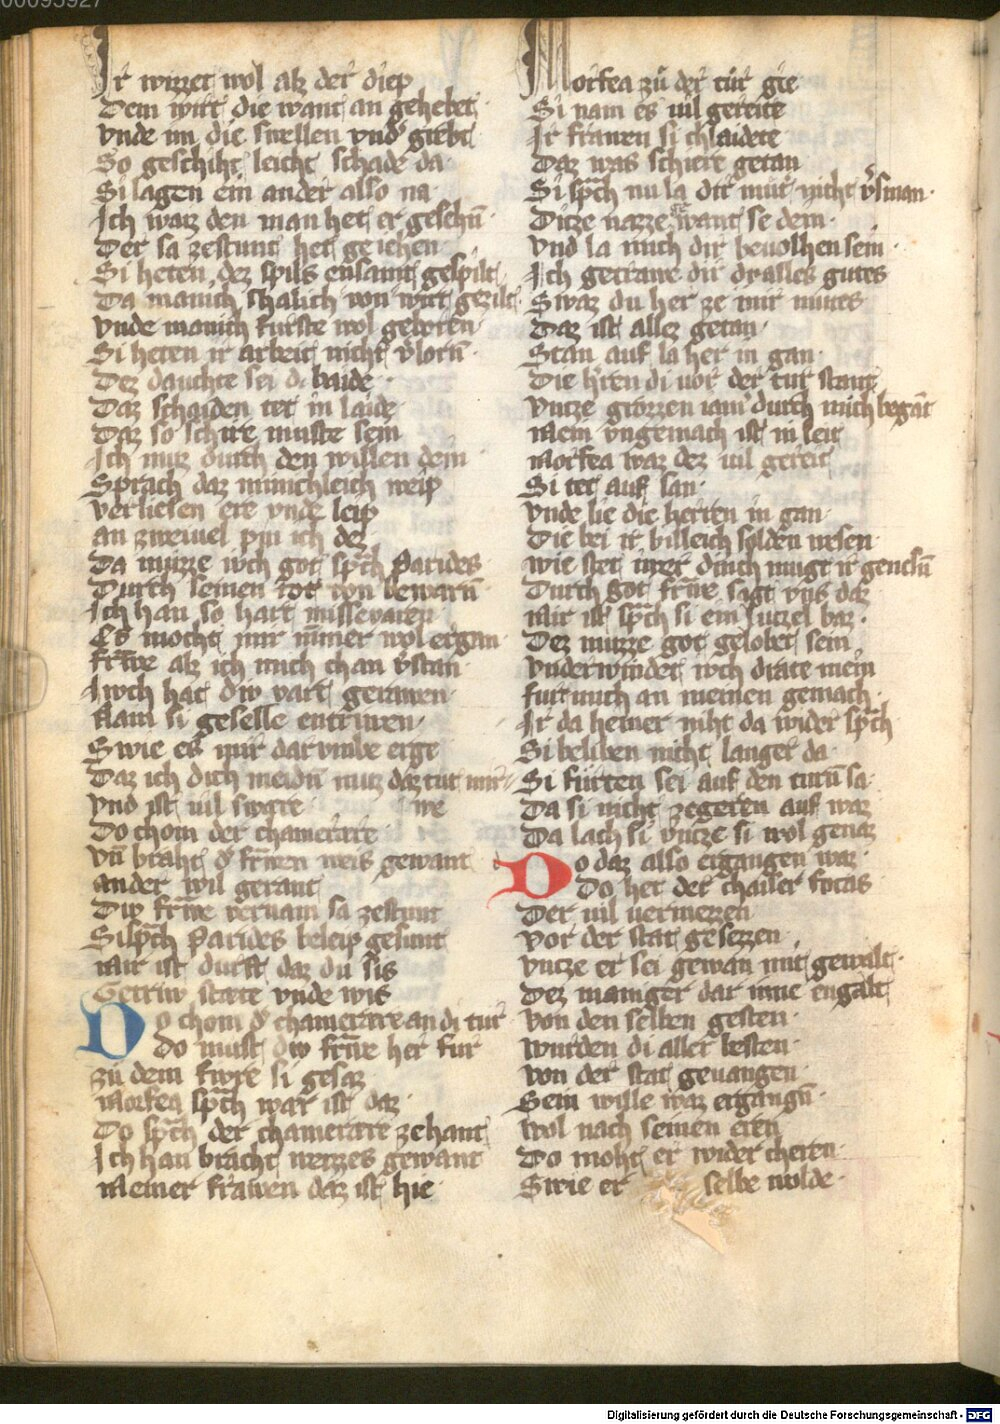 00095927
Ir wizzet wol alz der diep
Dem wirt die want an gehebet
vnde im die snellen vnd git
So geschiht leicht schade da
Si lagen ein ander also na
Ich waiz den man het er geschn̄
Der sa zestunt het geiehen
Si heten dez spils ensamt gespilt
Da manich schalich von wirt gezilt
vnde manich furste wol geborn
Si heten ir arbeit nicht v̓lorn̄
Dez dauchte sei di baide
Daz schaiden tet in laide
Daz so schire muste sein
Ich muz durch den willen dein
Sprach daz minichleich weip
verliesen ere vnde leip
an zweiuel pin ich dez
Da muzze iwch got sp̄ch Parides
Durch seinen tot von bewarn̄
Ich han so hart misseuaren
Es mocht mir nimer wol ergan
fra̅we alz ich mich chan v̓stan
Iwch hat diw vart gerawen
Nam si geselle entriwen
Swie es mir dar vmbe erge
Daz ich dich meidn̄ muz daz tut mir
vnd ist uil swære we
Do chom der chamerære
vn̄ braht d̓ fra̅wen weis gewant
ander wil gerant
Diw fra̅we vernam sa zestunt
Si sp̄ch Parides beleip gesunt
Mir ist durft daz du sis
Getriw stæte vnde wis
Do chom d̓ chamerære an di tur
Do must diw fra̅we her fur
zu dem fiwre si gesaz
Morfea sp̄ch war ist daz
Do sp̄ch der chamerære zehant
Ich han bracht weizzes gewant
Meiner frawen daz ist hie
Morfea zu der tür gie
Si nam es uil gereite
Ir frawen si chlaidete
Daz was schiere getan
Si sp̄ch nu la dir mut nicht v̓sman
Ditze nazze want se dem
vnd la mich dir beuolhen sein
Ich getrawe dir dz alles gutes
Swaz du her ze mir mutes
Daz ist allez getan
Stan auf la her in gan
Die h̓ren di uor der tur stant
vntze grozzen iam̓ durch mich begāt
Mein vngemach ist in leit
Morfea waz dez uil gereit
Si tet auf san
vnde lie die herren in gan
Die bei ir billeich solden wesen
wie stet iwer dinch mugt ir genesn̄
Durch got fra̅we sagt vns daz
Mir ist sp̄ch si ein lutzel baz
Dez muzze got gelobet sein
vnderwindet iwch drate mein
furt mich an meinen gemach
Ir da heiner niht da wider sp̄ch
Si beliben nicht langer da
Si furten sei auf den turn̄ sa
Da si nicht zegeren auf waz
Da lach si vntze si wol genaz
Do daz also ergangen waz
Do het der chaiser focas
Der uil vermezzen
vor der stat gesezzen
vntze er sei gewan mit gewalt
Dez maniger dar inne engalt
Von den selben gesten
wurden di aller besten
von der stat geuangen
Sein wille waz ergangn̄
wol nach seinen eren
Do moht er wider cheren
Swie er selbe wolde
Digitalisierung gefördert durch die Deutsche Forschungsgemeinschaft - DFG